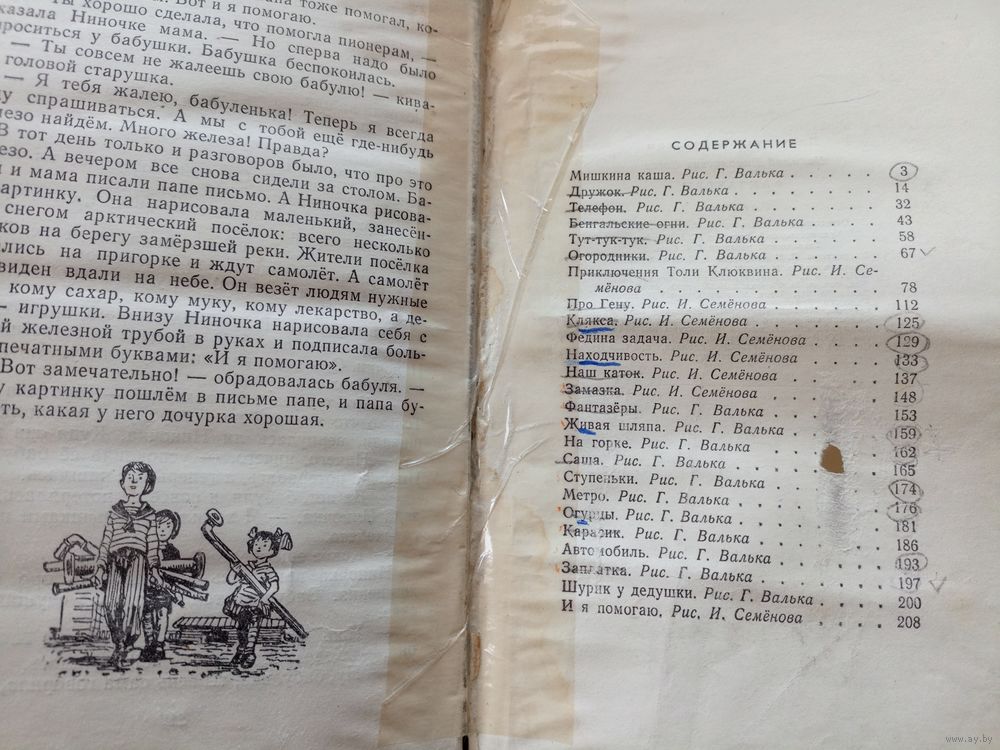 тоже помогал, ко-
Вот и я помогаю.
Ты хорошо сделала, что помогла пионерам, —
сказала Ниночке мама. — Но сперва надо было
проситься у бабушки. Бабушка беспокоилась.
— Ты совсем не жалеешь свою бабулю! — кива-
головой старушка.
— Я тебя жалею, бабуленька! Теперь я всегда
спрашиваться. А мы с тобой ещё где-нибудь
железо найдём. Много железа! Правда?
В тот день только и разговоров было, что про это
железо. А вечером все снова сидели за столом. Ба-
и мама писали папе письмо. А Ниночка рисова-
картинку. Она нарисовала маленький, занесён-
снегом арктический посёлок: всего несколько
ков на берегу замёрзшей реки. Жители посёлка
лись на пригорке и ждут самолёт. А самолёт
виден вдали на небе. Он везёт людям нужные
кому сахар, кому муку, кому лекарство, а де-
— игрушки. Внизу Ниночка нарисовала себя с
й железной трубой в руках и подписала боль-
печатными буквами: «И я помогаю».
Вот замечательно! — обрадовалась бабуля. —
у картинку пошлём в письме папе, и папа бу-
ть, какая у него дочурка хорошая.
СОДЕРЖАНИЕ
Мишкина каша. Рис. Г. Валька . . . . . 3
Дружок. Рис. Г. Валька . . . . . 14
Телефон. Рис. Г. Валька . . . . . 32
Бенгальские огни. Рис. Г. Валька . . . . . 43
Тут-тук-тук. Рис. Г. Валька . . . . . 58
Огородники. Рис. Г. Валька . . . . . 67
Приключения Толи Клюквина. Рис. И. Се-
мёнова . . . . . 78
Про Гену. Рис. И. Семёнова . . . . . 112
Клякса. Рис. И. Семёнова . . . . . 125
Федина задача. Рис. И. Семёнова . . . . . 129
Находчивость. Рис. И. Семёнова . . . . . 133
Наш каток. Рис. И. Семёнова . . . . . 137
Замазка. Рис. И. Семёнова . . . . . 148
Фантазёры. Рис. Г. Валька . . . . . 153
Живая шляпа. Рис. Г. Валька . . . . . 159
На горке. Рис. Г. Валька . . . . . 162
Саша. Рис. Г. Валька . . . . . 165
Ступеньки. Рис. Г. Валька . . . . . 174
Метро. Рис. Г. Валька . . . . . 176
Огурцы. Рис. Г. Валька . . . . . 181
Карасик. Рис. Г. Валька . . . . . 186
Автомобиль. Рис. Г. Валька . . . . . 193
Заплатка. Рис. Г. Валька . . . . . 197
Шурик у дедушки. Рис. Г. Валька . . . . 200
И я помогаю. Рис. И. Семёнова . . . . 208
www.ay.by